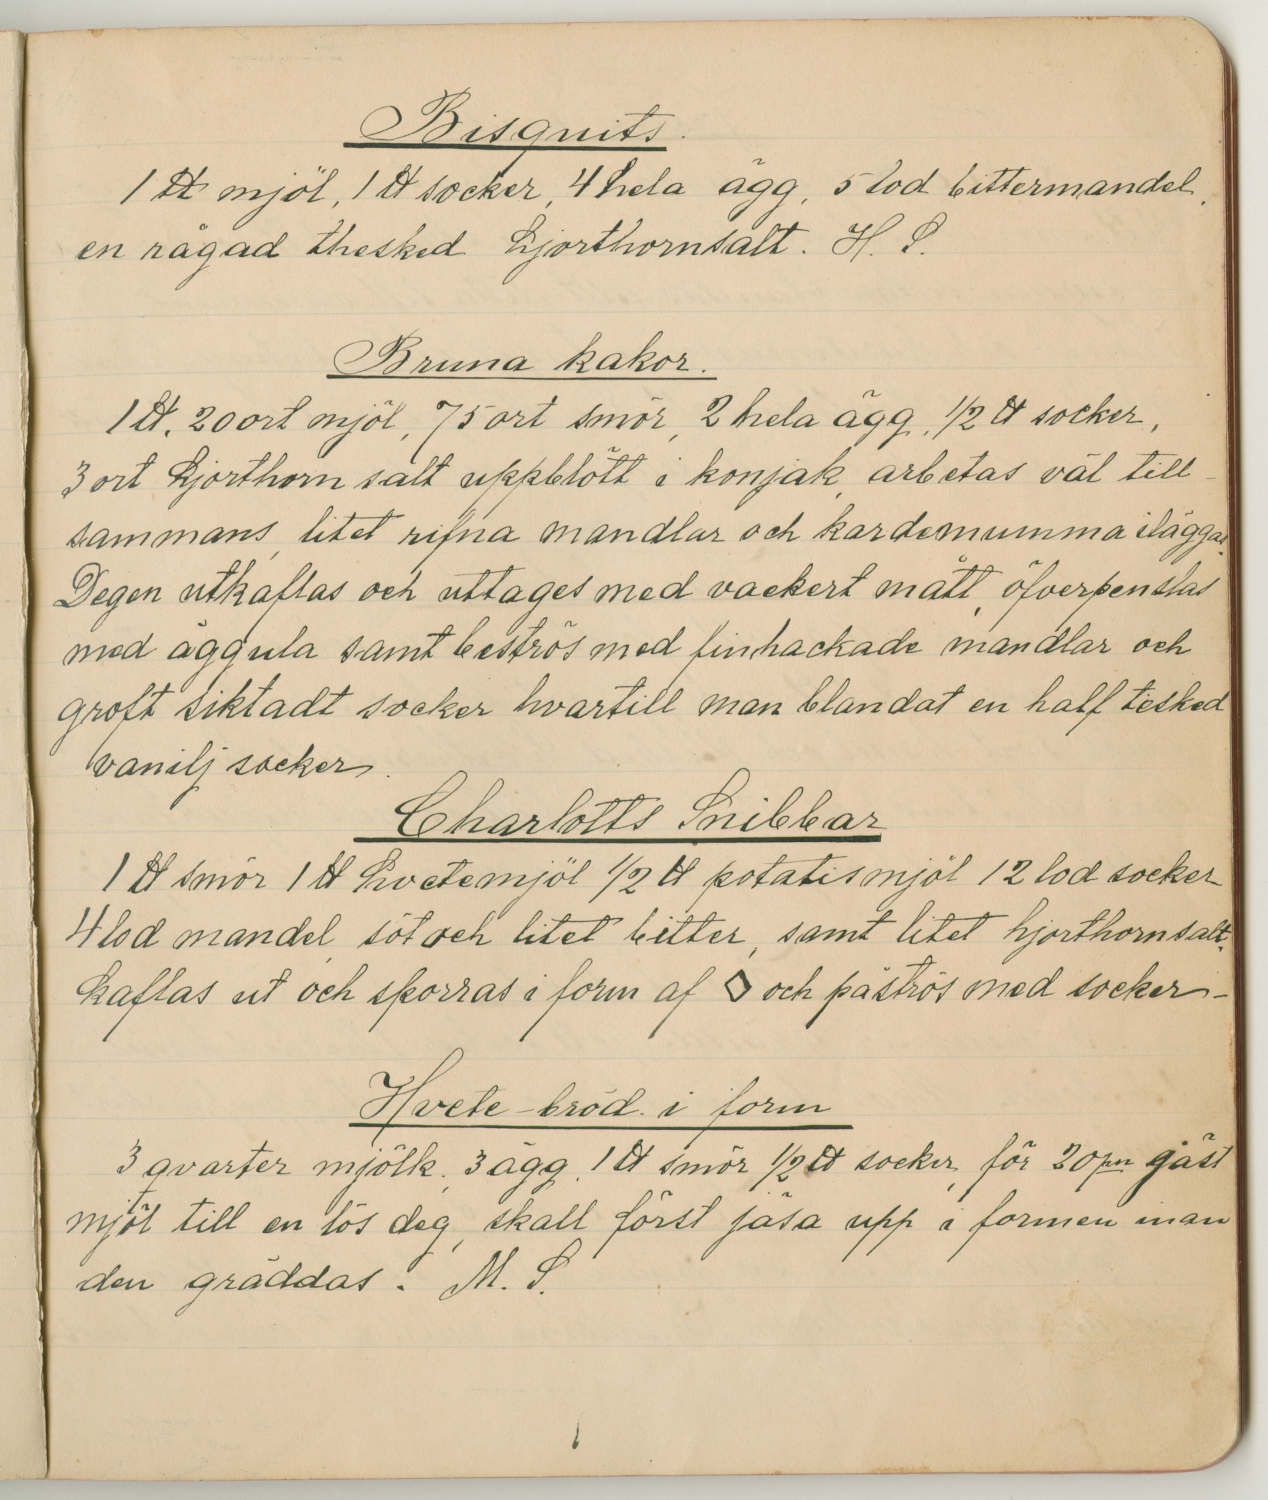 Bisquits.
1 ℔ mjöl, 1 ℔ socker, 4 hela ägg, 5 lod bittermandel,
en rågad thesked hjorthornsalt. H. S.
Bruna kakor.
1 ℔. 20 ort mjöl, 75 ort smör, 2 hela ägg, 1/2 ℔ socker,
3 ort hjorthorn salt uppblött i konjak, arbetas väl till-
sammans, litet rifna mandlar och kardemumma iläggas.
Degen utkaflas och uttages med vackert mått, öfverpenslas
med äggula samt beströs med finhackade mandlar och
groft siktadt socker hvartill man blandat en half tesked
vanilj socker.
Charlotts Snibbar
1 ℔ smör 1 ℔ hvetemjöl 1/2 ℔ potatismjöl 12 lod socker
4 lod mandel, söt och litet bitter, samt litet hjorthornsalt.
kaflas ut och sporras i form af ◇ och påströs med socker-
Hvete-bröd i form
3 qvarter mjölk, 3 ägg, 1 ℔ smör 1/2 ℔ socker, för 20 jäst
mjöl till en lös deg, skall först jäsa upp i formen inan
den gräddas. M. S.